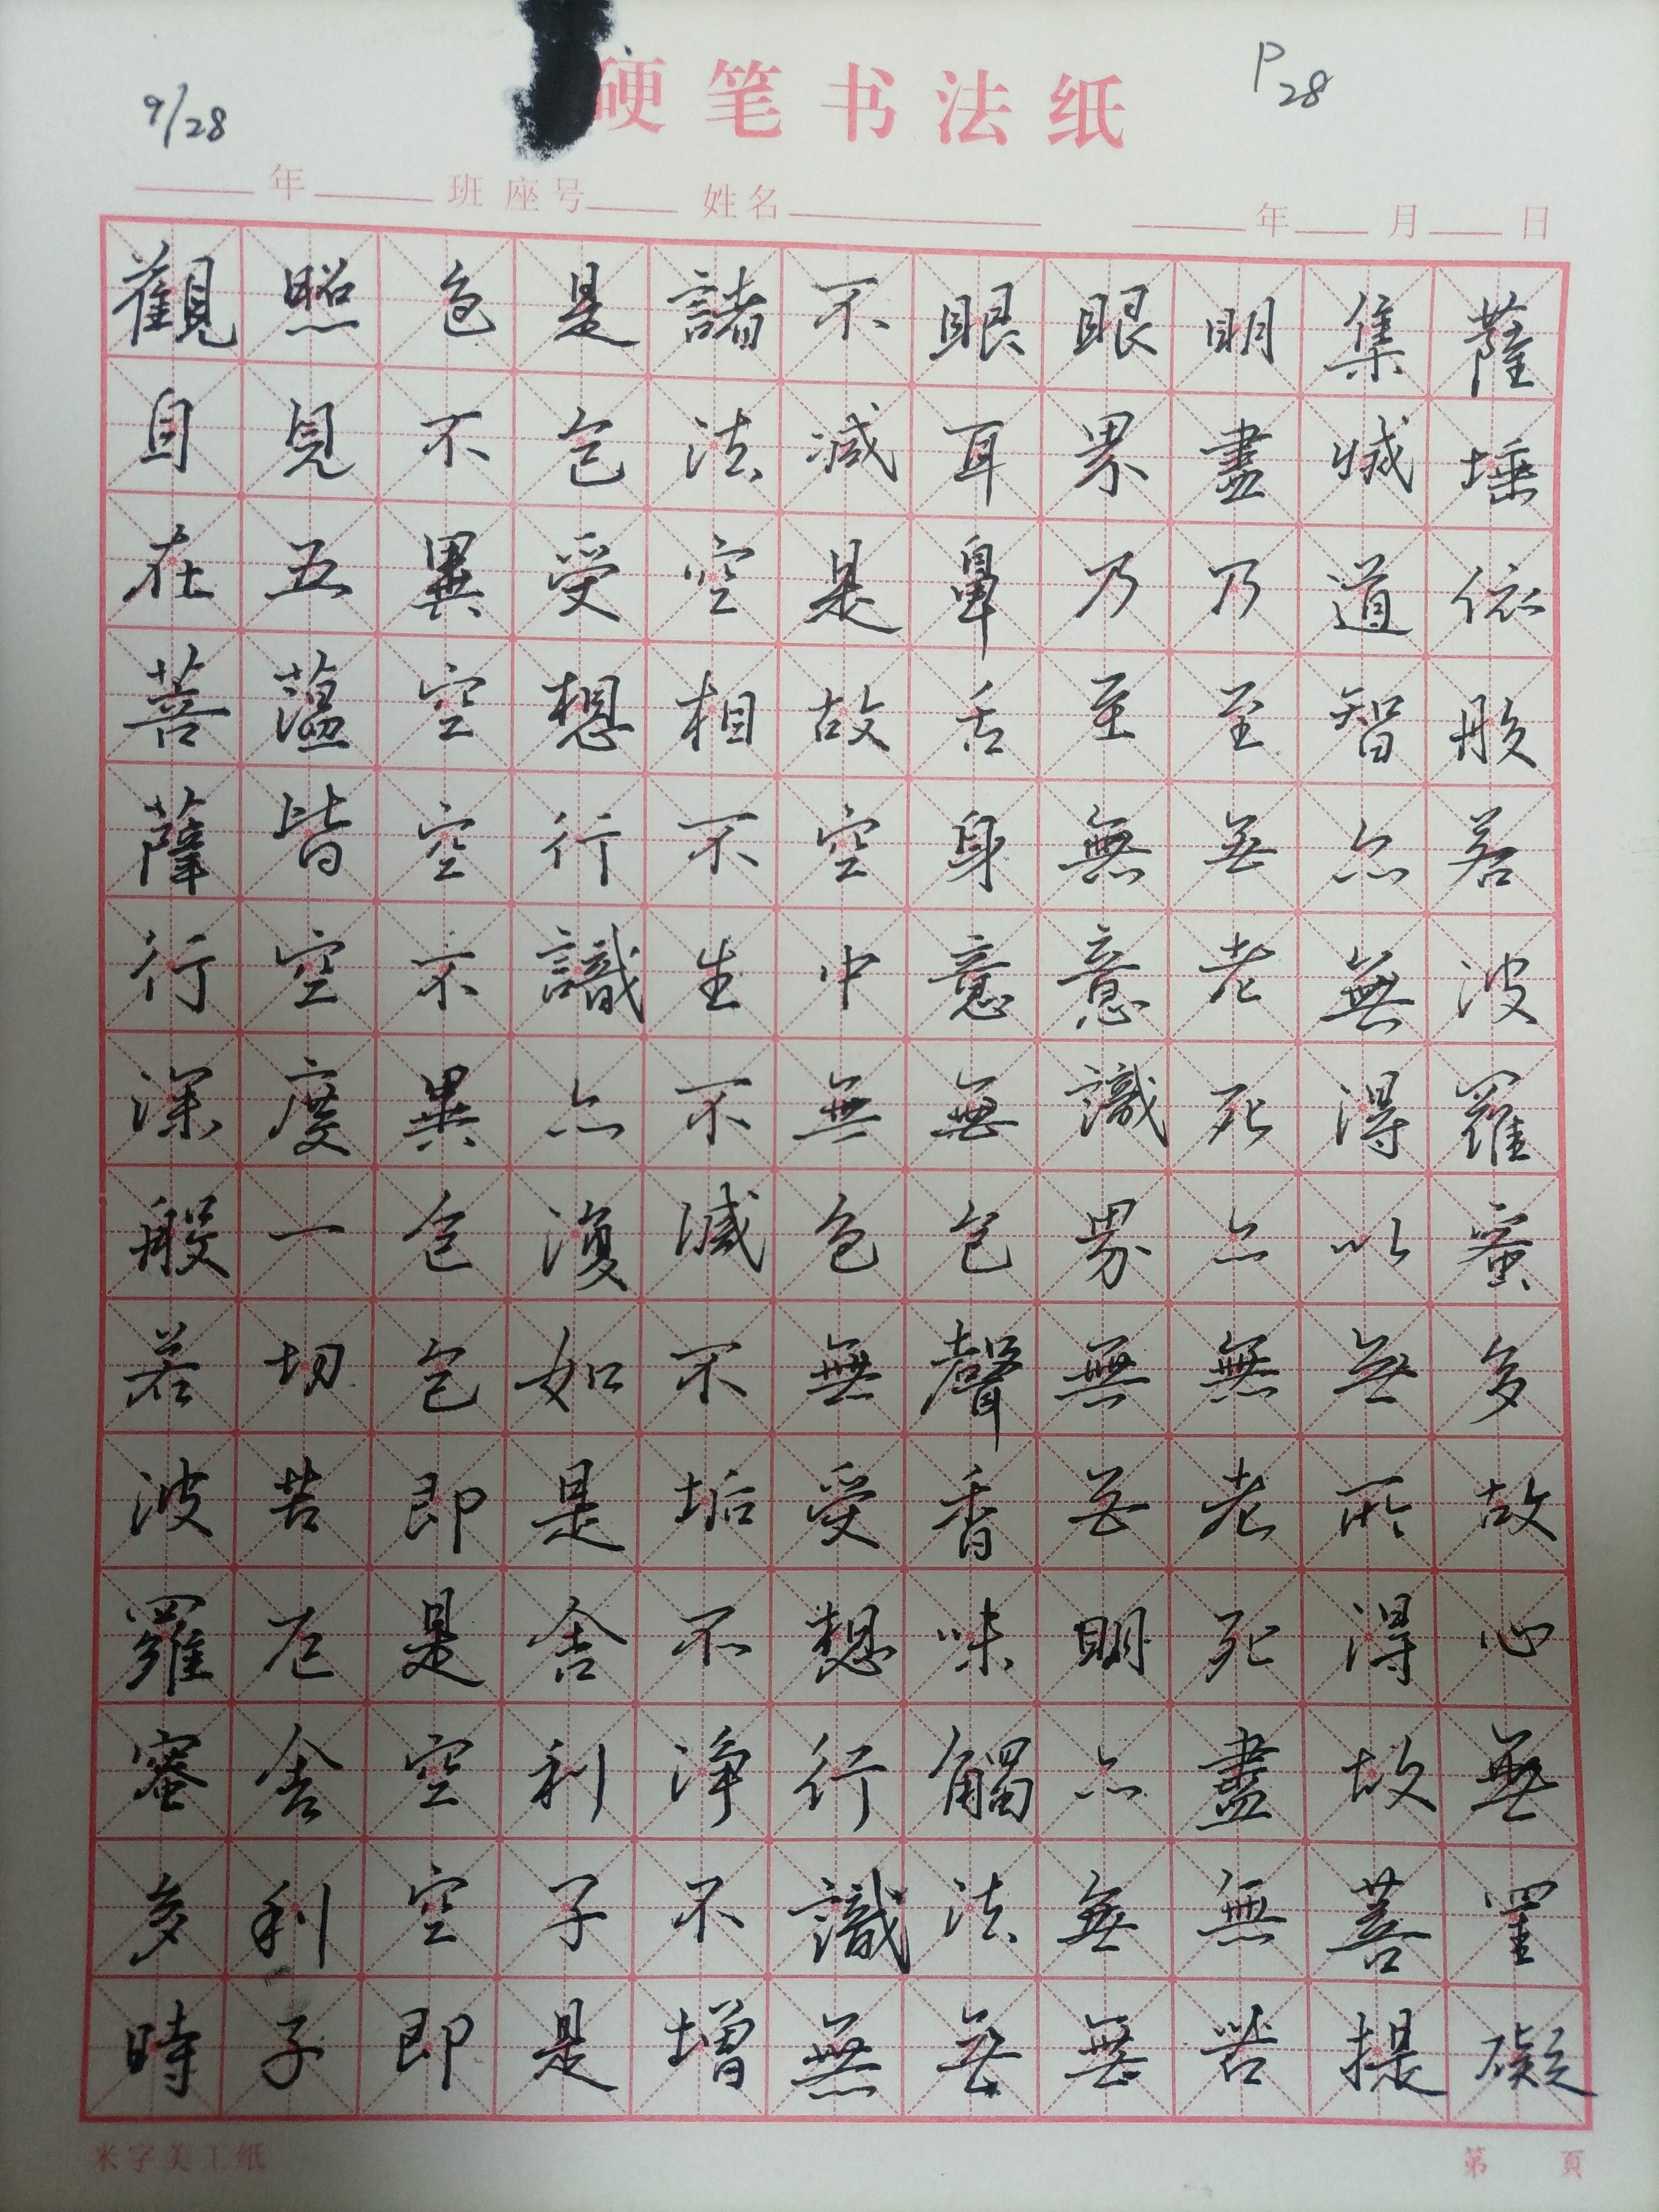 9/28
硬笔书法纸
P28
年 班 座号 姓名 年 月 日
觀自在菩薩行深般若波羅蜜多時
照見五蘊皆空度一切苦厄舍利子
色不異空空不異色色即是空空即
是色受想行識亦復如是舍利子是
諸法空相不生不滅不垢不淨不增
不減是故空中無色無受想行識無
眼耳鼻舌身意無色聲香味觸法無
眼界乃至無意識界無無明亦無無
明盡乃至無老死亦無老死盡無苦
集滅道智亦無得以無所得故菩提
薩埵依般若波羅蜜多故心無罣礙
米字美工纸
第 頁